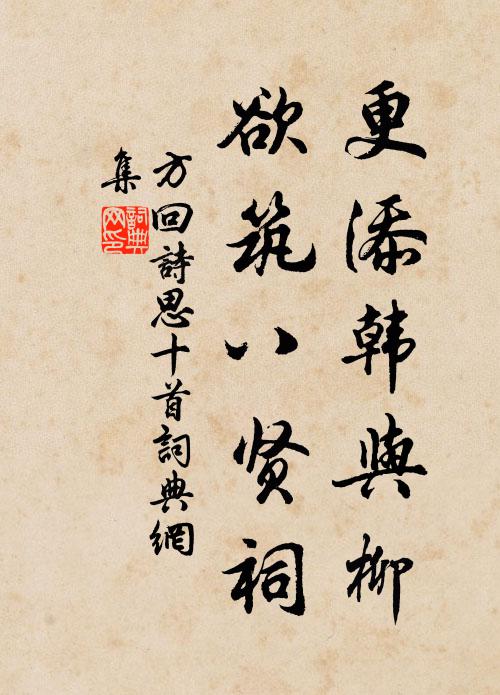 更添韩與柳
欲筑八贤祠
方回詩思十首詞典網
集
詞典網印